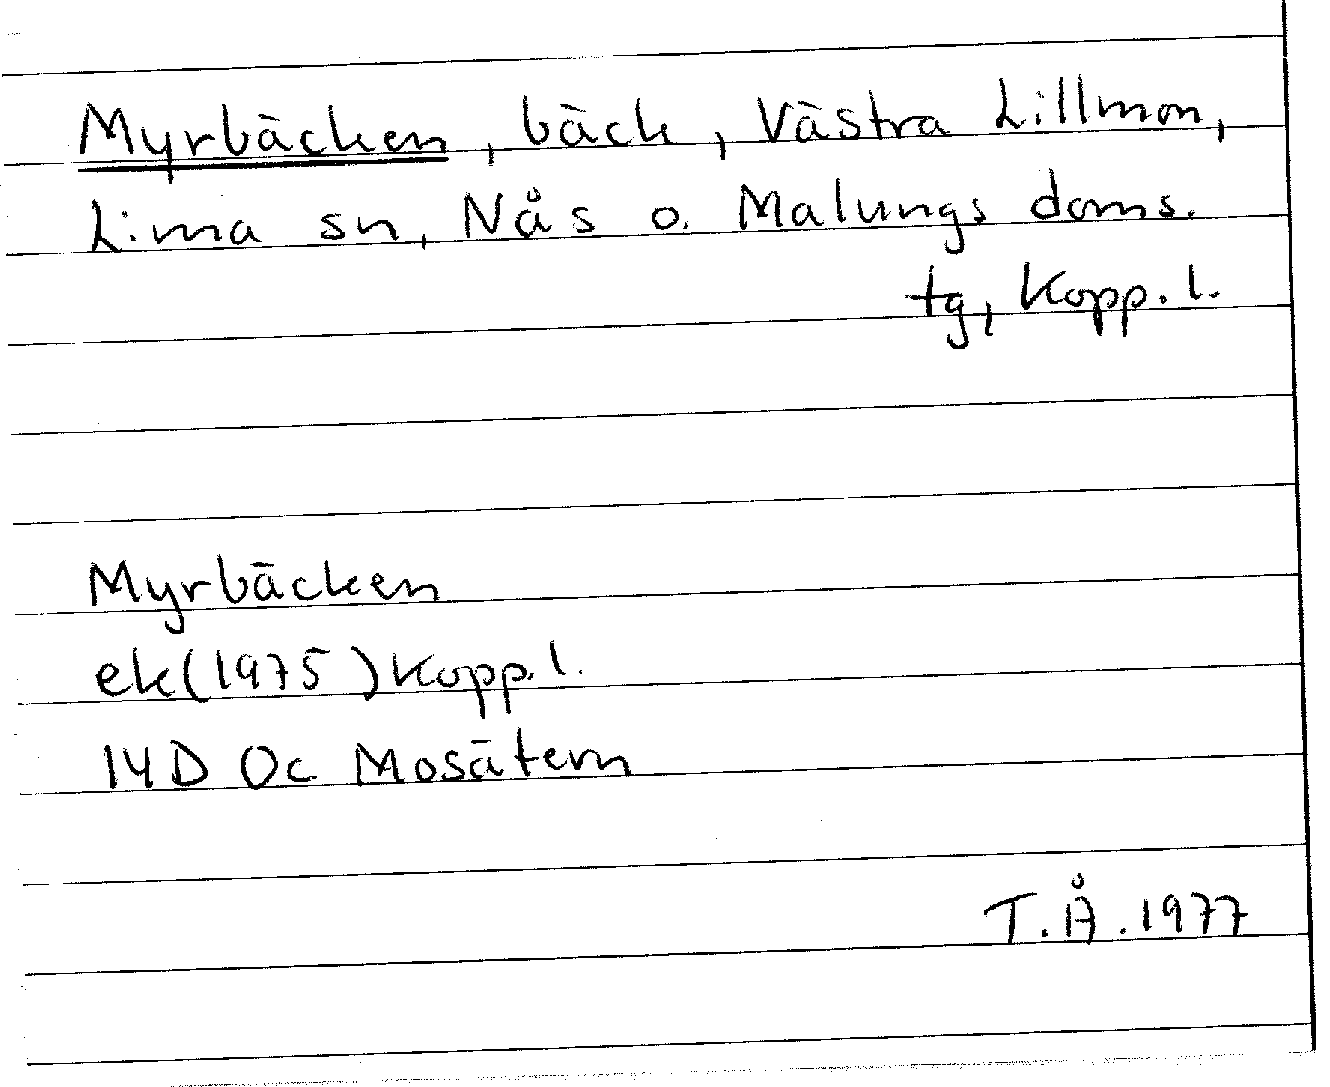 Myrbäcken, bäck, Västra Lillmon,
Lima sn, Nås o. Malungs doms.
tg, Kopp. l.
Myrbäcken
ek(1975) Kopp. l.
14D 0c Mosätern
T.Å. 1977